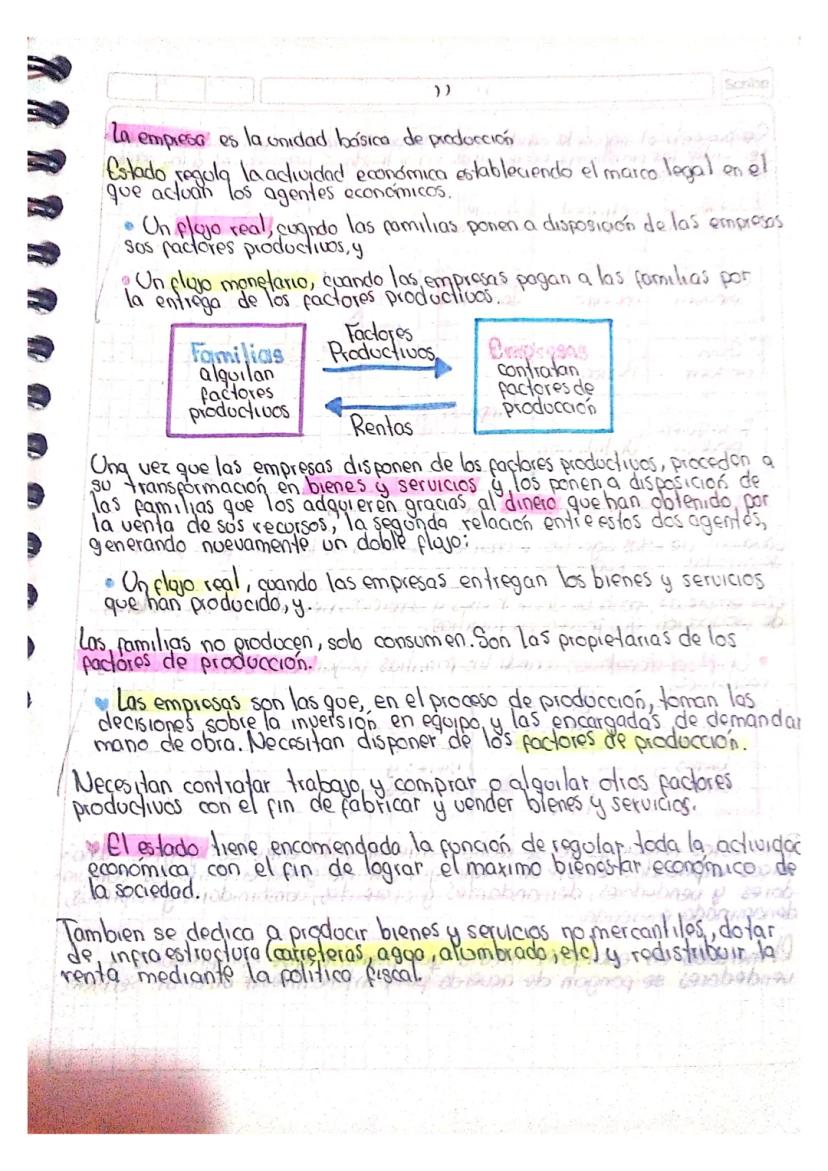 Scribe
La empresa es la unidad básica de producción
Estado regola la actividad económica estableciendo el marco legal en el
que actuan los agentes económicos.
• Un flujo real, cuando las familias ponen a disposición de las empresas
sos factores productivos, y
• Un flujo monetario, cuando las empresas pagan a las familias por
la entrega de los factores productivos.
Familias
alquilan
factores
productivos
Factores
Productivos
Rentas
Empresas
contratan
factores de
producción
Una vez que las empresas disponen de los factores productivos, proceden a
su transformación en bienes y servicios y los ponen a disposición de
las familias que los adquieren gracias al dinero que han obtenido por
la venta de sos recursos, la segunda relación entre estos dos agentes,
generando nuevamente un doble flujo:
• Un flujo real, cuando las empresas entregan los bienes y servicios
que han producido, y.
Las familias no producen, solo consumen. Son las propietarias de los
factores de producción.
Las empresas son las que, en el proceso de producción, toman las
decisiones sobre la inversión en equipo, y las encargadas de demandar
mano de obra. Necesitan disponer de los factores de producción.
Necesitan contratar trabajo, y comprar o alquilar otros factores
productivos con el fin de fabricar y vender bienes y servicios.
El estado tiene encomendada la función de regolar toda la actividad
económica con el fin de lograr el maximo bienestar económico de
la sociedad.
Tambien se dedica a producir bienes y servicios no mercantiles, dotar
de infraestructura (carreteras, agua, alumbrado, etc) y redistribuir la
renta mediante la politica fiscal.